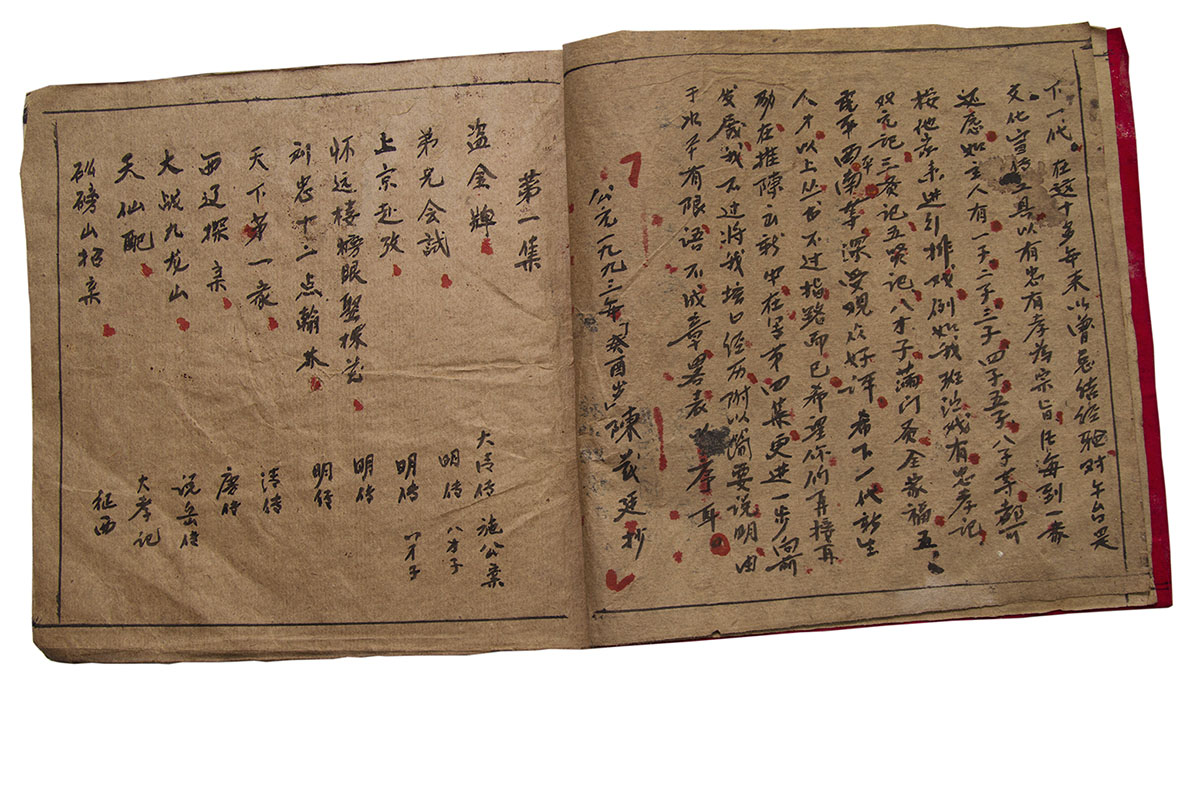 下一代。在这十多年来以曾总结经验对午台是
文化宣传工具以有忠有孝为宗旨
还愿如主人有一子二子三子四子五子八子等都可
按他家来进引排戏例如我班演戏有忠孝记
双元记三贵记五贤记八才子满门贵全家福五
西南等深受观众好评 希下一代新生
人才以上丛书不过指路而已希望你们再接再
励在推陈出新中在写第四集更进一步向前
发展我不过将我坛口经历附以简要说明由
于水平有限语不成章署表 孝耳
公元一九九三年癸酉岁陳茂廷抄
第一集
盗金輝 大清传 施公案
弟兄会試 明传 八才子
上京赴攷 明传 八才子
怀远楼榜眼娶探花 明传
刘忠十二点翰林 明传
天下第一家 清传
西辽探亲 唐传
大战九龙山 说岳传
天仙配 大孝记
磅山招亲 征西